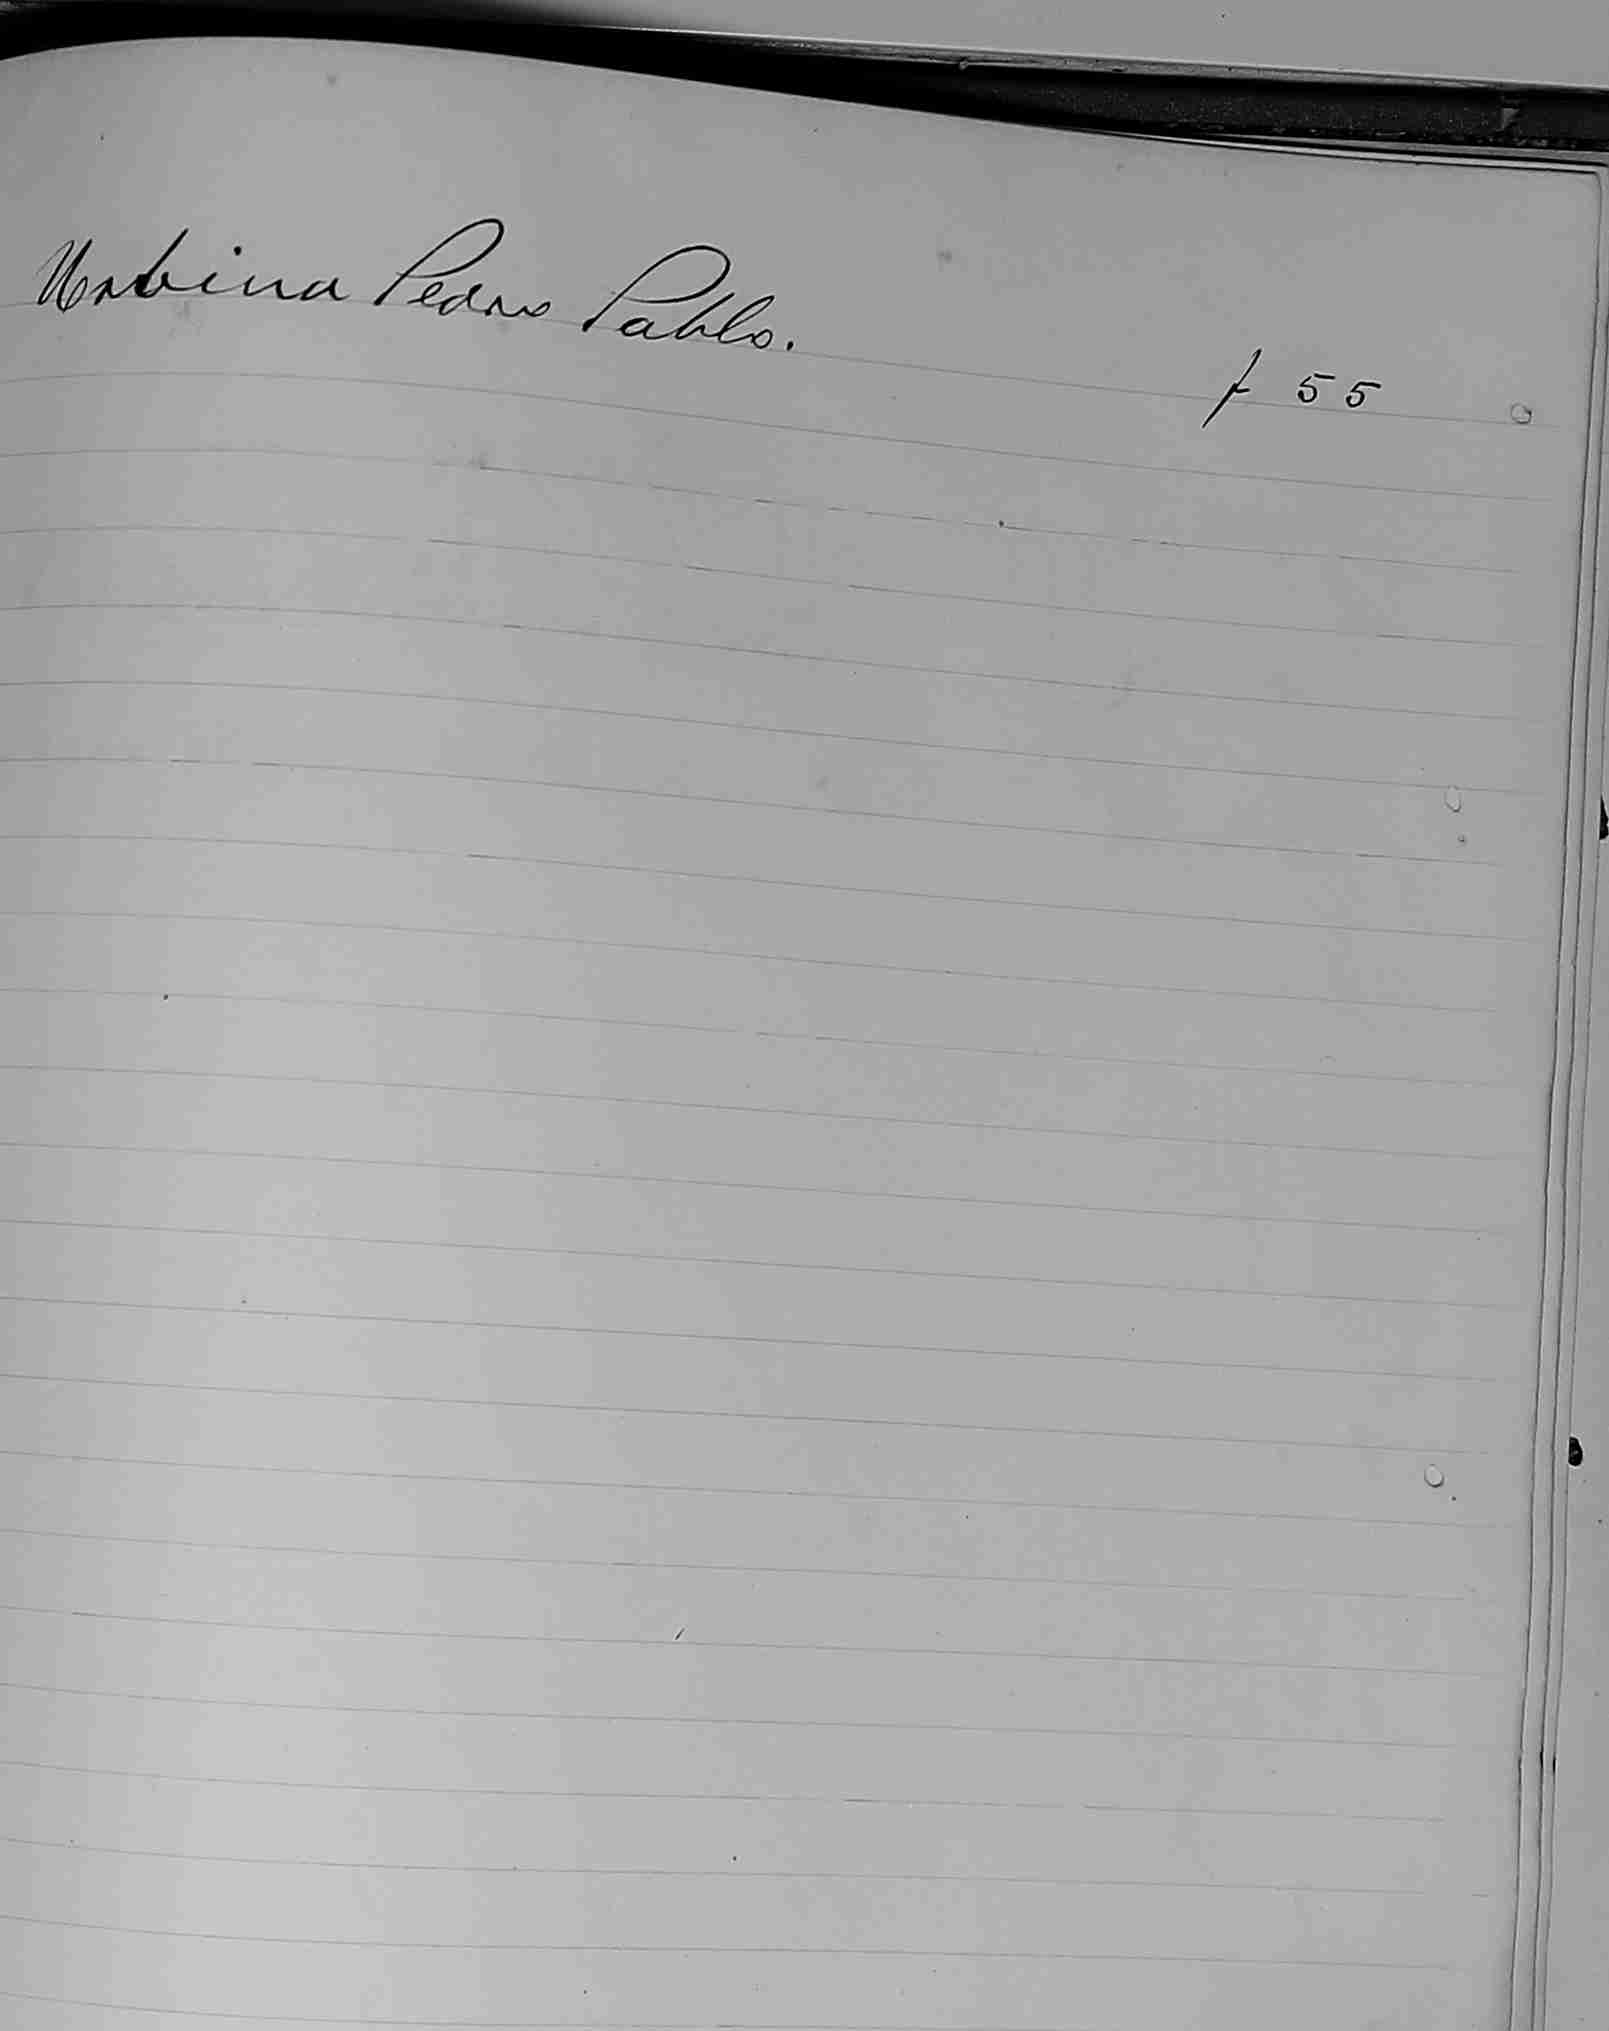 Urbina Pedro Pablo. f 55